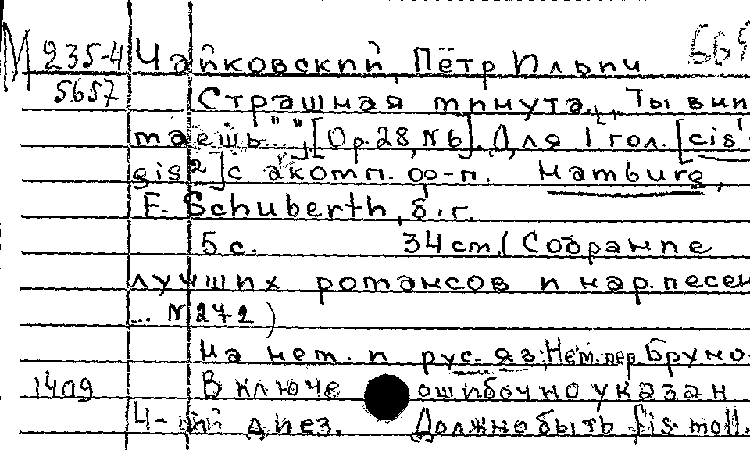 М 235-4 Чайковский, Пётр Ильич
5657 Страшная минута. "Ты вни
маешь..." [Op. 28, № 6]. Для 1 гол. [cis¹-
gis²] с акомп. ф-п. Hamburg,
F. Schuberth, б. г.
5 с. 34 cm. (Собрание
лучших романсов и нар. песен
... № 272)
На нем. и рус. яз. Нем. пер. Бруно
1409 В ключе ошибочно указан
4-ый диез. Должно быть fis moll.